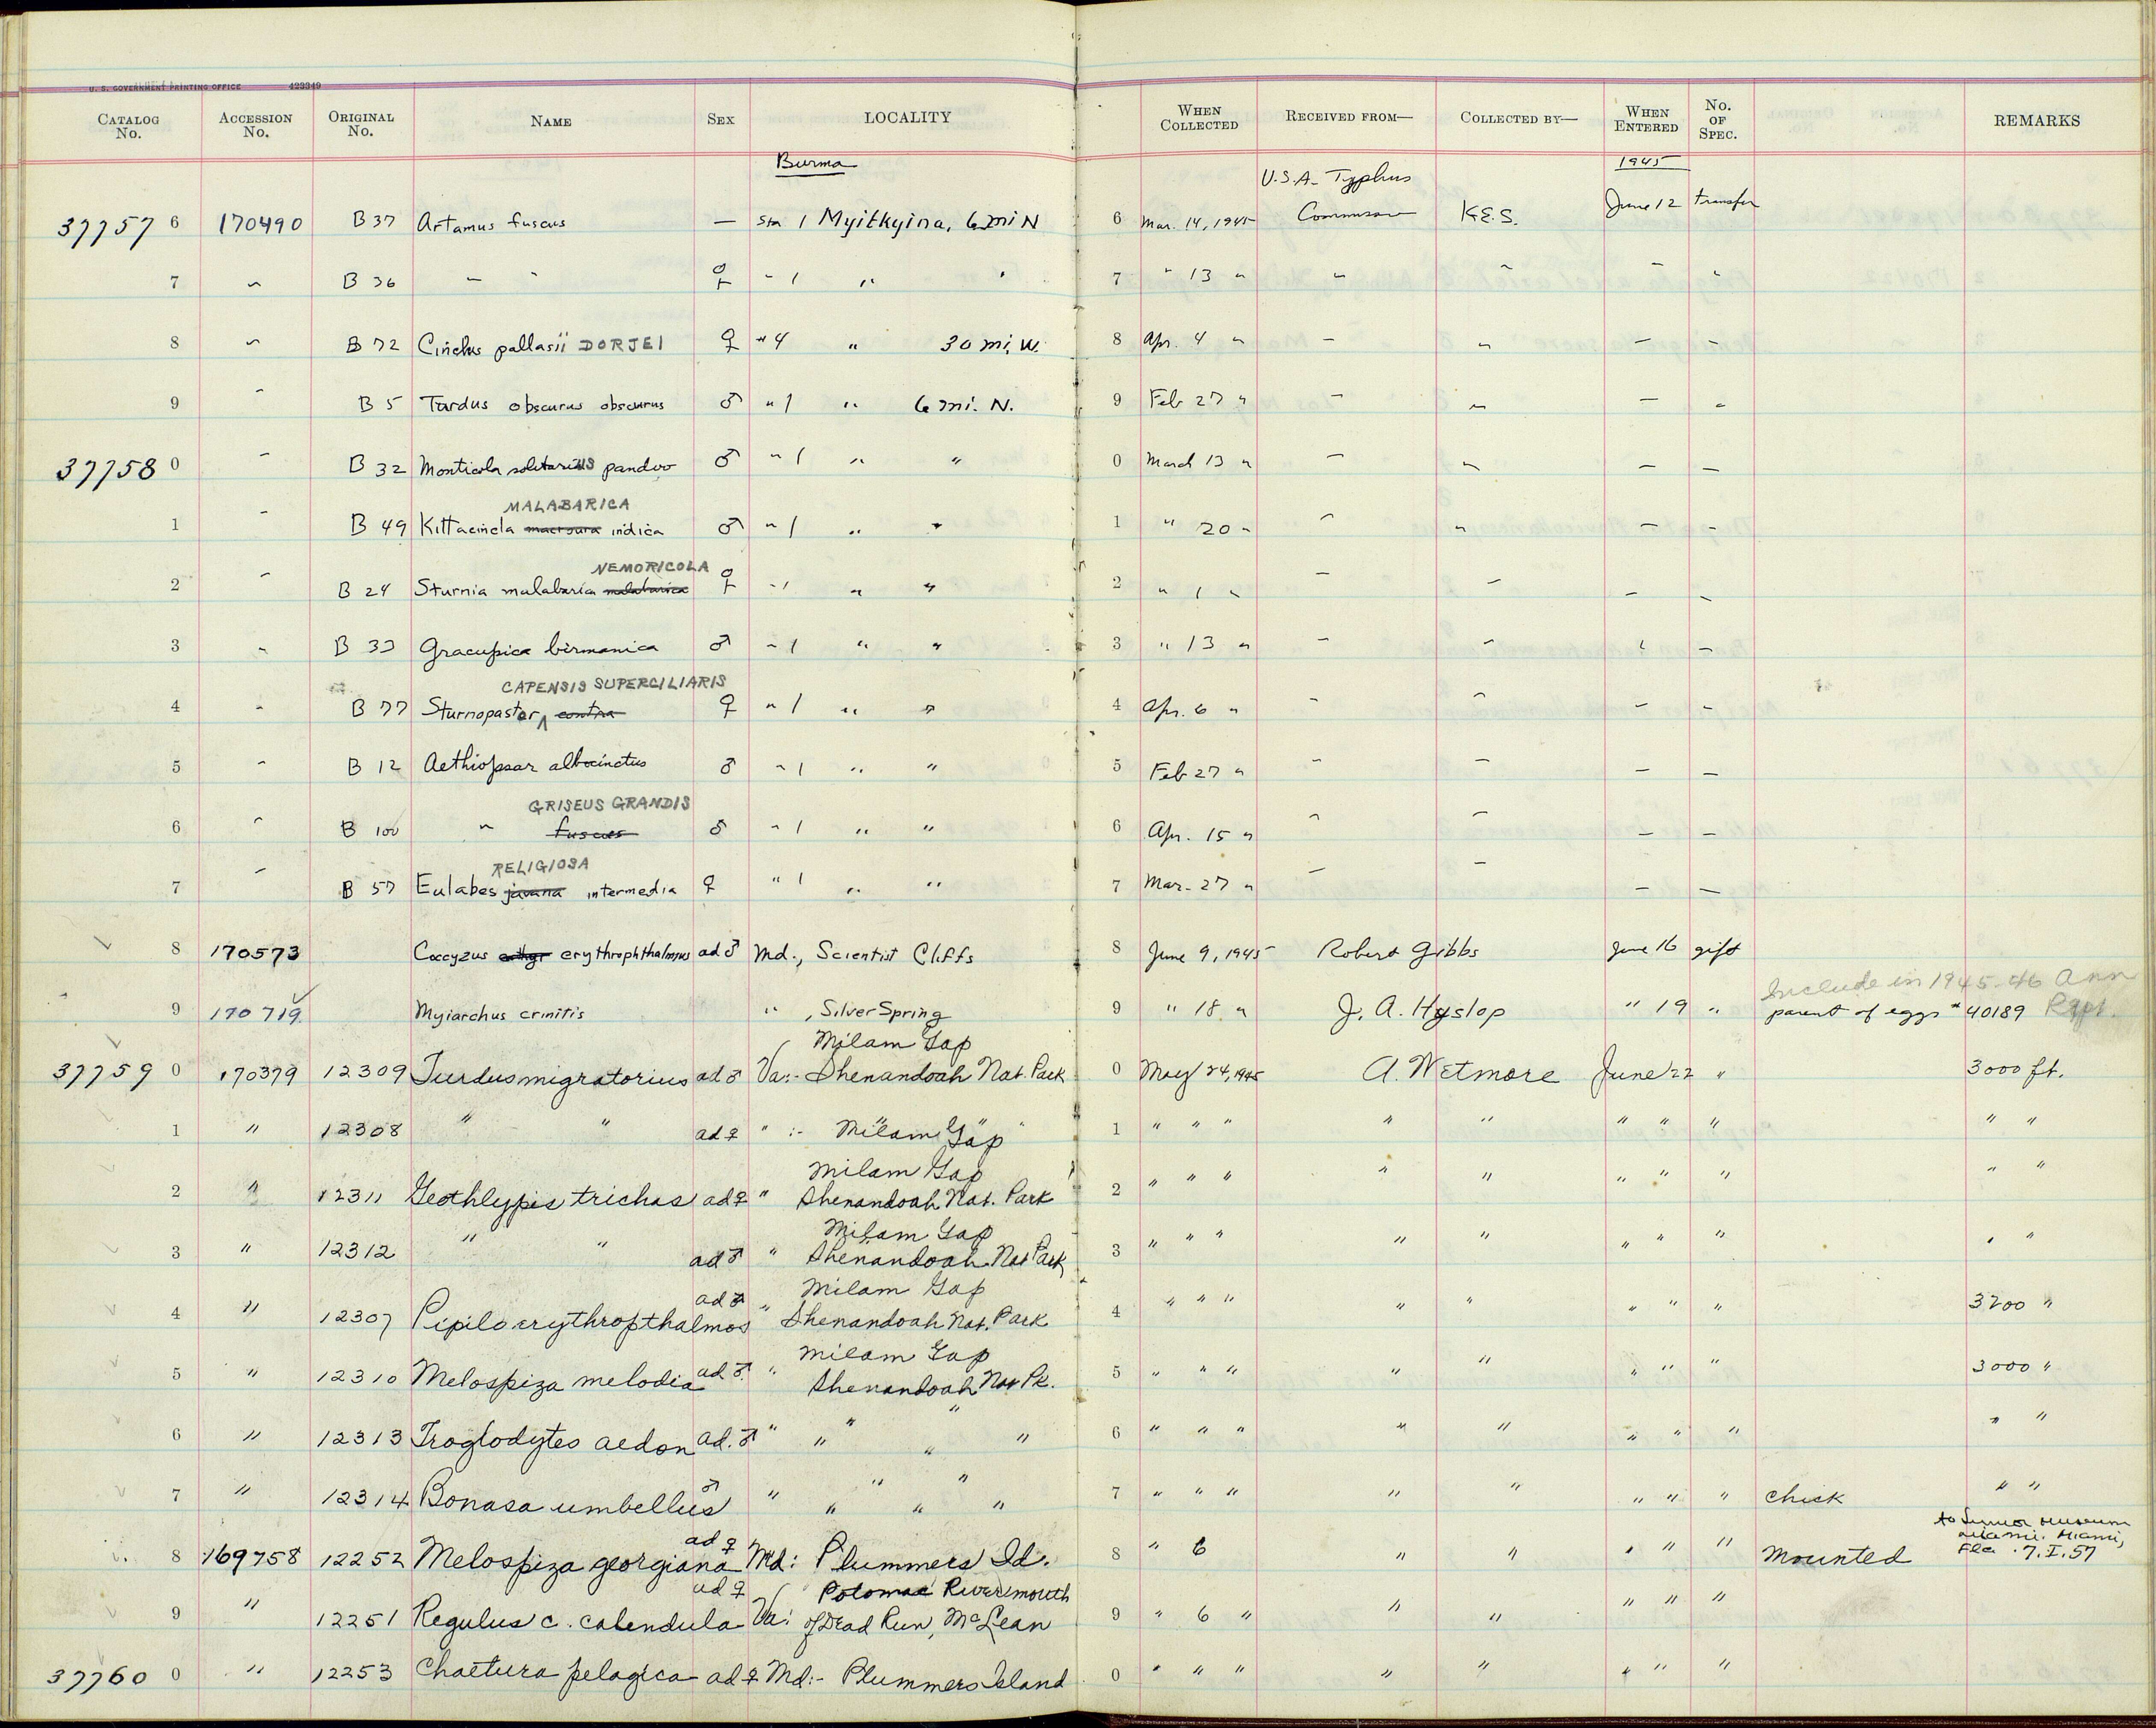 U. S. GOVERNMENT PRINTING OFFICE 423349
CATALOG No. ACCESSION No. ORIGINAL No. NAME SEX LOCALITY WHEN COLLECTED RECEIVED FROM— COLLECTED BY— WHEN ENTERED No. OF SPEC. REMARKS
Burma 1945
U.S.A. Typhus
37757 6 170490 B 37 Artamus fuscus — Sta 1 Myitkyina, 6 mi N 6 Mar. 14, 1945 Commission K.E.S. June 12 transfer
7 " B 36 " " ♀ " 1 " " 7 " 13 " " " " "
8 " B 72 Cinclus pallasii DORJEI ♀ " 4 " 30 mi, W. 8 Apr. 4 " " " " "
9 " B 5 Turdus obscurus obscurus ♂ " 1 " 6 mi. N. 9 Feb 27 " " " " "
37758 0 " B 32 Monticola solitarius pandoo ♂ " 1 " " 0 March 13 " " " " "
MALABARICA
1 " B 49 Kittacincla macroura indica ♂ " 1 " " 1 " 20 " " " " "
NEMORICOLA
2 " B 24 Sturnia malabarica malabarica ♀ " 1 " " 2 " 1 " " " " "
3 " B 33 Gracupica birmanica ♂ " 1 " " 3 " 13 " " " " "
CAPENSIS SUPERCILIARIS
4 " B 77 Sturnopastor ^ contra ♀ " 1 " " 4 Apr. 6 " " " " "
5 " B 12 Aethiopsar albocinctus ♂ " 1 " " 5 Feb 27 " " " " "
GRISEUS GRANDIS
6 " B 100 " fuscus ♂ " 1 " " 6 Apr. 15 " " " " "
RELIGIOSA
7 " B 57 Eulabes javana intermedia ♀ " 1 " " 7 Mar. 27 " " " " "
8 170573 Coccyzus erythrophthalmus ad ♂ Md., Scientist Cliffs 8 June 9, 1945 Robert Gibbs June 16 gift
Include in 1945-46 Ann
9 170719 Myiarchus crinitis " , Silver Spring 9 " 18 " J. A. Hyslop " 19 " parent of eggs # 40189 Rept.
Milam Gap
37759 0 170379 12309 Turdus migratorius ad ♂ Va:- Shenandoah Nat. Park 0 May 24, 1945 A. Wetmore June 22 " 3000 ft.
1 " 12308 " " ad ♀ " :- Milam Gap 1 " " " " " " " " " "
Milam Gap
2 " 12311 Geothlypis trichas ad ♀ " Shenandoah Nat. Park 2 " " " " " " " " " "
Milam Gap
3 " 12312 " " ad ♂ " Shenandoah Nat Park 3 " " " " " " " " " "
ad ♂ Milam Gap
4 " 12307 Pipilo erythropthalmos " Shenandoah Nat. Park 4 " " " " " " " " 3200 "
Milam Gap
5 " 12310 Melospiza melodia ad ♂. " Shenandoah Nat Pk. 5 " " " " " " " " 3000 "
6 " 12313 Troglodytes aedon ad. ♂ " " " " 6 " " " " " " " " " "
7 " 12314 Bonasa umbellus ♂ " " " " 7 " " " " " " " " chick " "
to Junior museum
Miami, Miami,
Fla. 7.I.57
8 169758 12252 Melospiza georgiana ad ♀ Md: Plummers Id. 8 " 6 " " " " " Mounted
ad ♀ Potomac River mouth
9 " 12251 Regulus c. calendula Va: of Dead Run, McLean 9 " 6 " " " " " "
37760 0 " 12253 Chaetura pelagica ad ♀ Md:- Plummers Island 0 " " " " " " " "